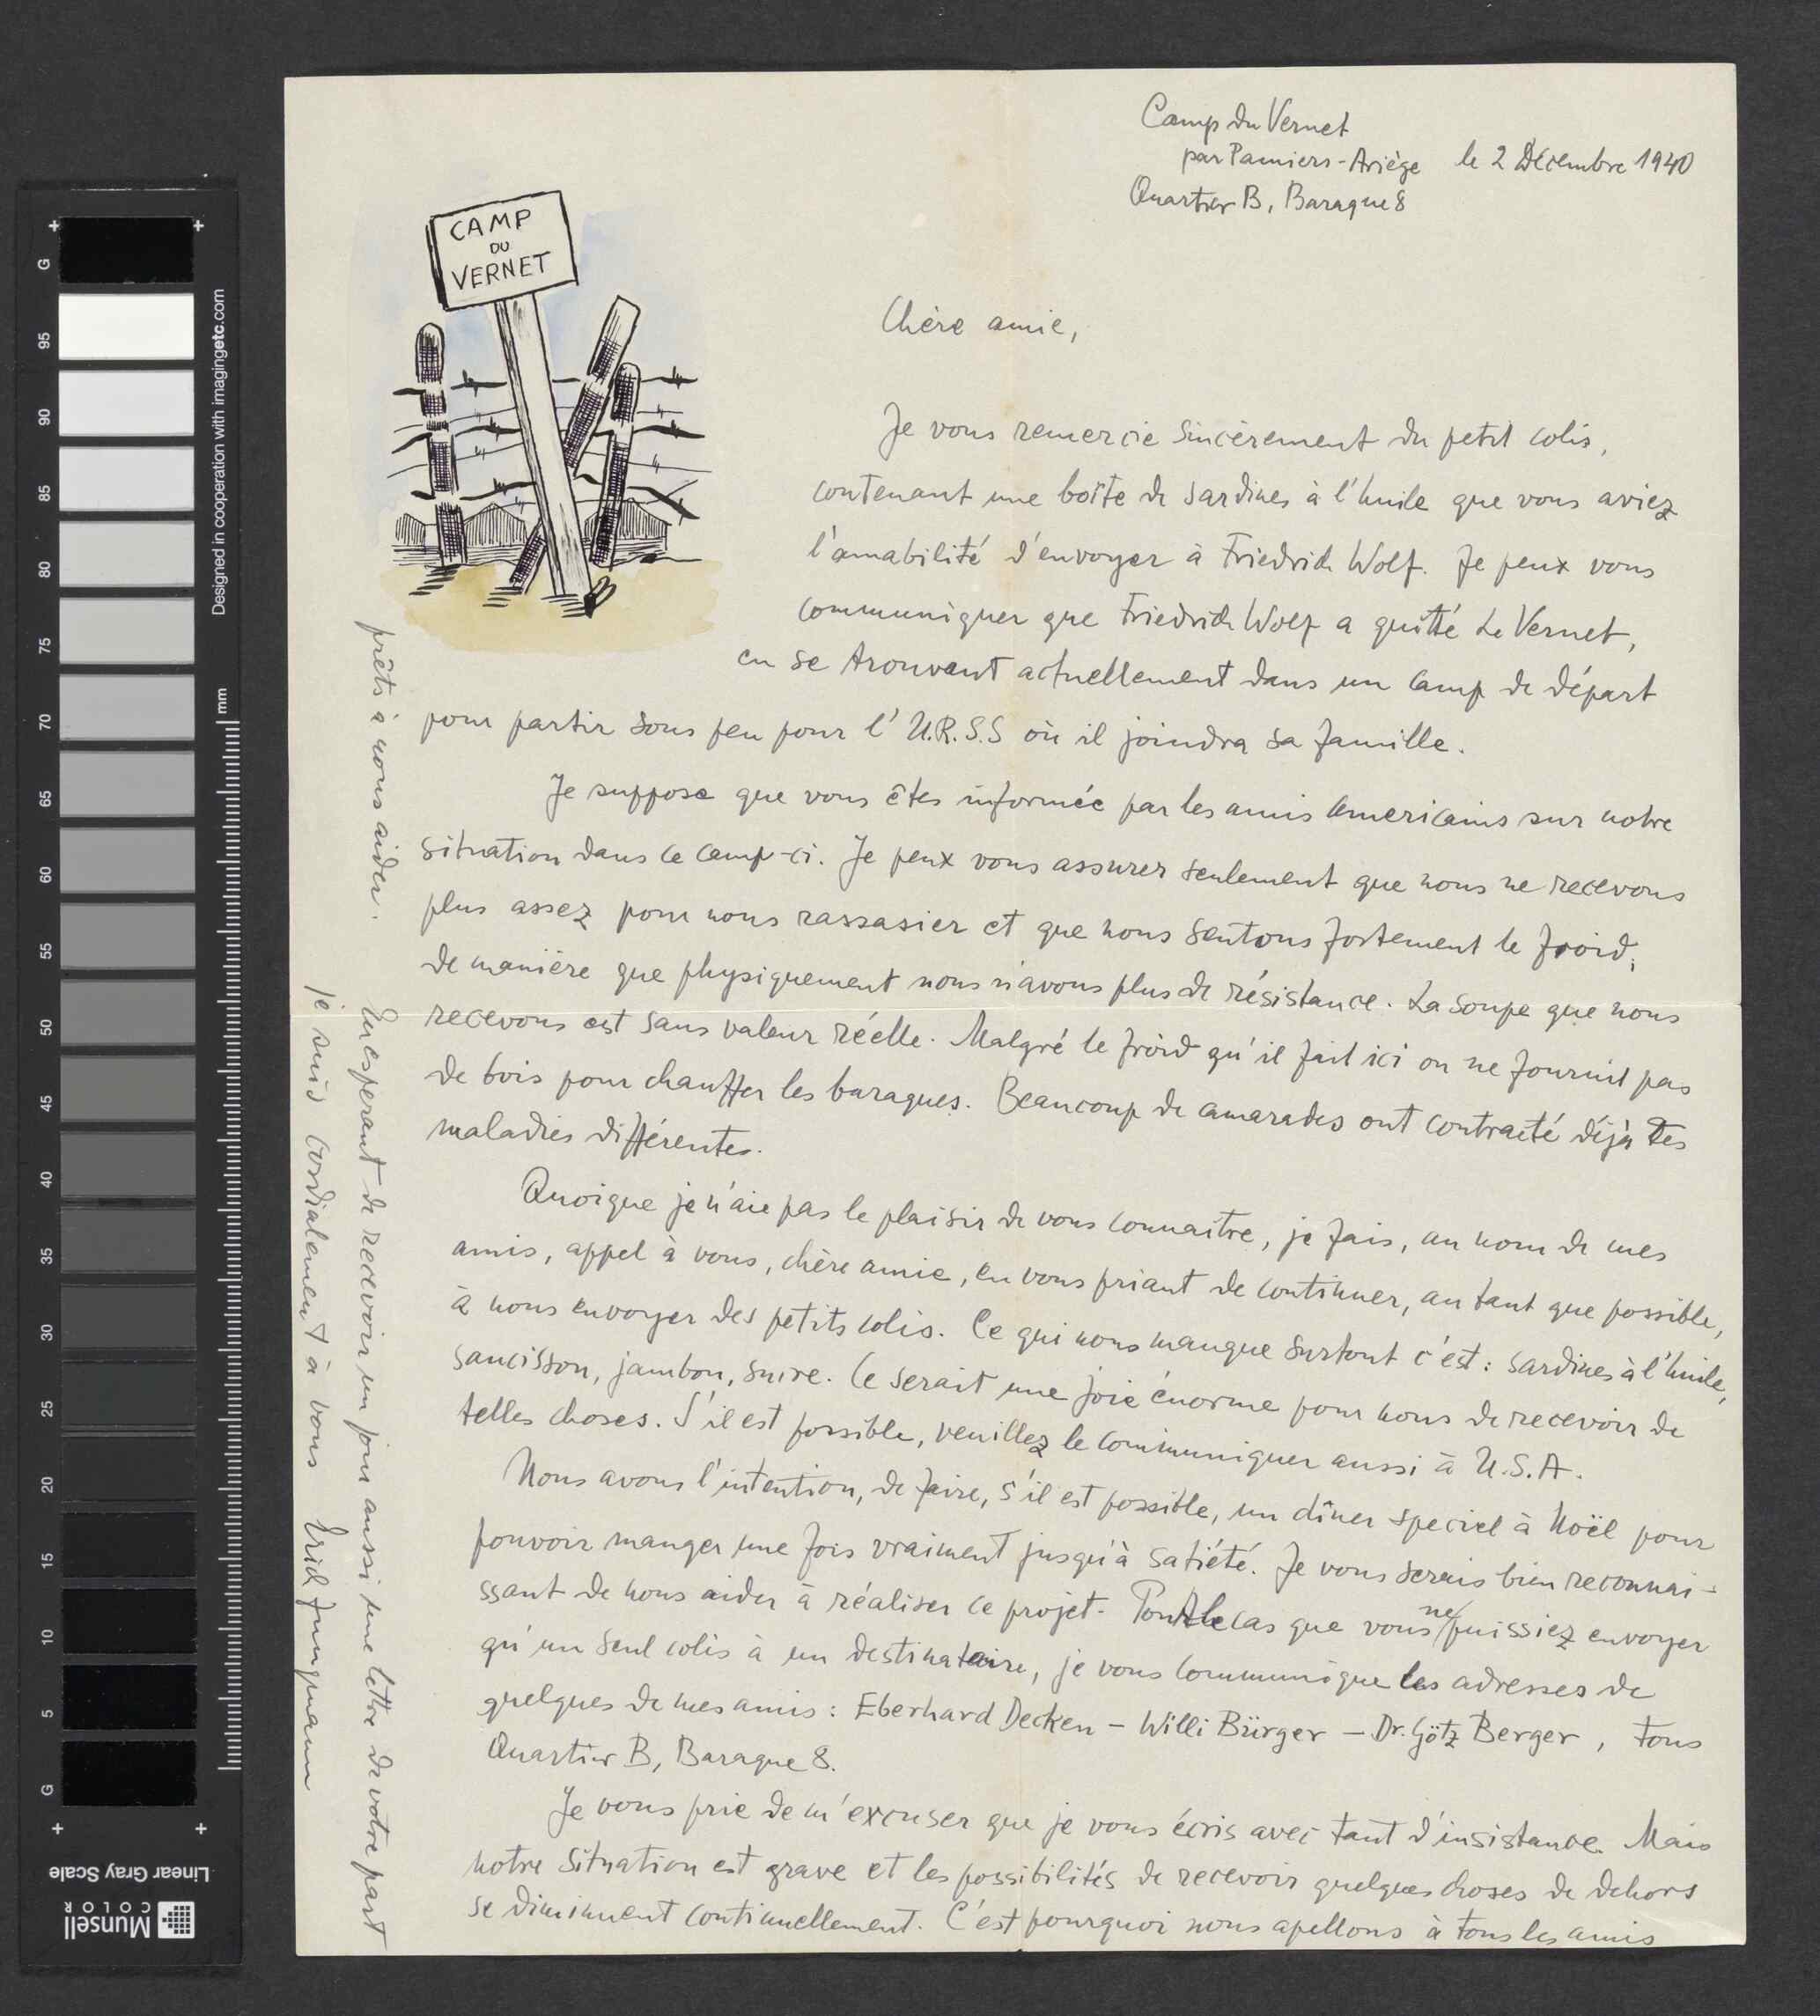 Camp du Vernet
par Pamiers-Ariège le 2 Décembre 1940
Quartier B, Baraque 8
CAMP
DU
VERNET
Chère amie,
Je vous remercie sincèrement du petit colis,
contenant une boîte de sardines à l'huile que vous aviez
l'amabilité d'envoyer à Friedrich Wolf. Je peux vous
communiquer que Friedrich Wolf a quitté Le Vernet,
en se trouvant actuellement dans un camp de départ
pour partir sous peu pour l'U.R.S.S où il joindra sa famille.
Je suppose que vous êtes informée par les amis américains sur notre
situation dans ce camp-ci. Je peux vous assurer seulement que nous ne recevons
plus assez pour nous rassasier et que nous sentons fortement le froid,
de manière que physiquement nous n'avons plus de résistance. La soupe que nous
recevons est sans valeur réelle. Malgré le froid qu'il fait ici on ne fournit pas
de bois pour chauffer les baraques. Beaucoup de camarades ont contracté déjà des
maladies différentes.
Quoique je n'aie pas le plaisir de vous connaître, je fais, au nom de mes
amis, appel à vous, chère amie, en vous priant de continuer, autant que possible,
à nous envoyer des petits colis. Ce qui nous manque surtout c'est: sardines à l'huile,
saucisson, jambon, sucre. Ce serait une joie énorme pour nous de recevoir de
telles choses. S'il est possible, veuillez le communiquer aussi à U.S.A.
Nous avons l'intention, de faire, s'il est possible, un dîner speciel à Noël pour
pouvoir manger une fois vraiment jusqu'à satiété. Je vous serais bien reconnai-
ssant de nous aider à réaliser ce projet. Pour le cas que vous ne puissiez envoyer
qu'un seul colis à un destinataire, je vous communique les adresses de
quelques de mes amis: Eberhard Decken – Willi Bürger – Dr. Götz Berger, tous
Quartier B, Baraque 8.
Je vous prie de m'excuser que je vous écris avec tant d'insistance. Mais
notre situation est grave et les possibilités de recevoir quelques choses de dehors
se diminuent continuellement. C'est pourquoi nous apellons à tous les amis
prêts à nous aider.
En esperant de recevoir un jour aussi une lettre de votre part
je suis cordialement à vous Erich Jungmann
+ +
G 95 90 85 80 75 70 65 60 55 50 45 40 35 30 25 20 15 10 5 G
+ +
Designed in cooperation with imagingetc.com
mm
Linear Gray Scale
Munsell
COLOR